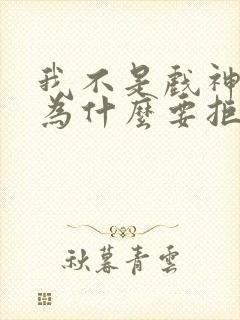 我不是戲神
為什麼要拒
秋暮青雲